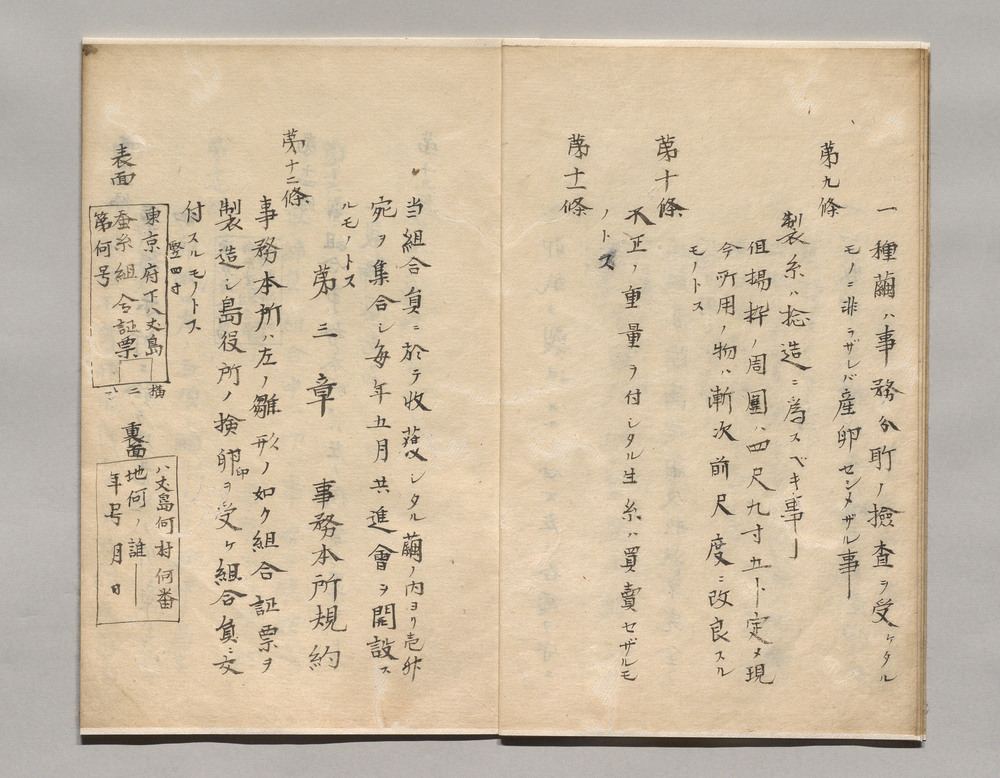 一種繭ハ事務分所ノ撿査ヲ受ケタル
モノニ非ラザレバ産卵セシメザル事
第九條
製糸ハ捻造ニ為スベキ事
但揚枠ノ周圍ハ四尺九寸五分ト定メ現
今所用ノ物ハ漸次前尺度ニ改良スル
モノトス
第十條
不正ノ重量ヲ付シタル生糸ハ買賣セザルモ
ノトス
第十一條
当組合員ニ於テ收蔟シタル繭ノ内ヨリ壱升
宛ヲ集合シ毎年五月共進會ヲ開設ス
ルモノトス
第三章 事務本所規約
第十二條
事務本所ハ左ノ雛形ノ如ク組合証票ヲ
製造シ島役所ノ検印ヲ受ケ組合員ニ交
付スルモノトス
竪四寸
表面
東京府下八丈島
蚕糸組合証票
第何号
横二寸
裏面
八丈島何村何番
地何ノ誰
年号月日